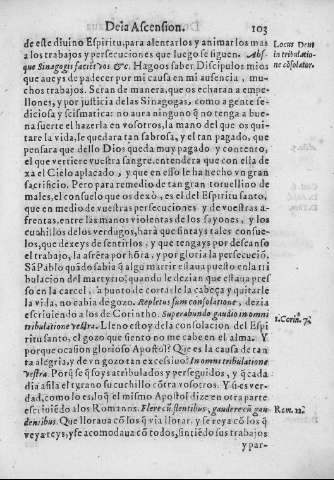 De la Ascension. 103
de este diuino Espiritu, para alentarlos y animarlos mas
a los trabajos y persecuciones que luego se siguen. Abs-
que Sinagogis facient vos &c. Hagoos saber Discipulos mios
que aueys de padecer por mi causa en mi ausencia, mu-
chos trabajos. Seran de manera, que os echaran a empe-
llones, y por justicia delas Sinagogas, como a gente se-
diciosa y scismatica: no aura ninguno q̃ no tenga a bue-
na suerte el hazerla en vosotros, la mano del que os qui-
tare la vida, le quedara tan sabrosa, y el tan pagado, que
pensara que dello Dios queda muy pagado y contento,
el que vertiere vuestra sangre, entendera que con ella de-
xa el Cielo aplacado, y que en esso le ha hecho vn gran
sacrificio. Pero para remedio de tan gran toruellino de
males, el consuelo que os dexò, es el del Espiritu santo,
que en medio de vuestras persecuciones y de vuestras a-
frentas, entre las manos violentas de los sayones, y los
cuchillos de los verdugos, harà que sintays tales consue-
los, que dexeys de sentirlos, y que tengays por descanso
el trabajo, la afrẽta por hõra, y por gloria la persecuciõ.
Sã Pablo quãdo sabia q̃ algu martir estaua puesto en la tri
bulacion del martyrio; quando le dezian que estaua pres-
so en la carcel, a punto de cortarle la cabeça y quitarle
la vida, no cabia de gozo. Repletus sum consolatione, dezia
escriuiendo a los de Corintho. Superabundo gaudio in omni
tribulatione vestra. Lleno estoy de la consolacion del Espi
ritu santo, el gozo que siento no me cabe en el alma. Y
porque ocasion glorioso Apostol? Que es la causa de tan
ta alegria, y de vn gozo tan excessiuo? In omni tribulatione
vestra. Porq̃ se q̃ soys atribulados y perseguidos, y q̃ cada
dia afila el tyrano su cuchillo cõtra vosotros. Y ũ es ver-
dad, como lo es, lo q̃ el mismo Apostol dize en otra parte
escriuiẽdo a los Romanos. Flere cũ flentibus, gaudere cũ gau
dentibus. Que lloraua cõ los q̃ via llorar, y se reya cõ los q̃
veya reys, y se acomodaua cõ todos, sintiẽdo sus trabajos
y par-
Locus Deut
in tribulatio-
ne cõsolator.
1. Corin. 7.
Rom. 12.